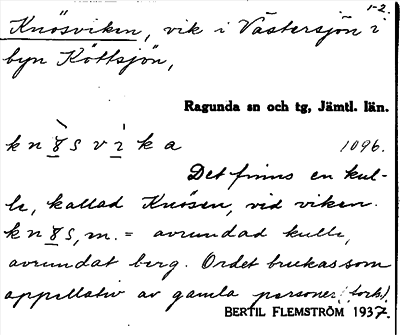 1-2.
Knösviken, vik i Västersjön i
byn Köttsjön,
Ragunda sn och tg, Jämtl. län.
kn8̀svi̇ka 1096.
Det finns en kul-
le, kallad Knösen, vid viken.
kn8s, m. = avrundad kulle,
avrundat berg. Ordet brukas som
appellativ av gamla personer (fork).
BERTIL FLEMSTRÖM 1937.